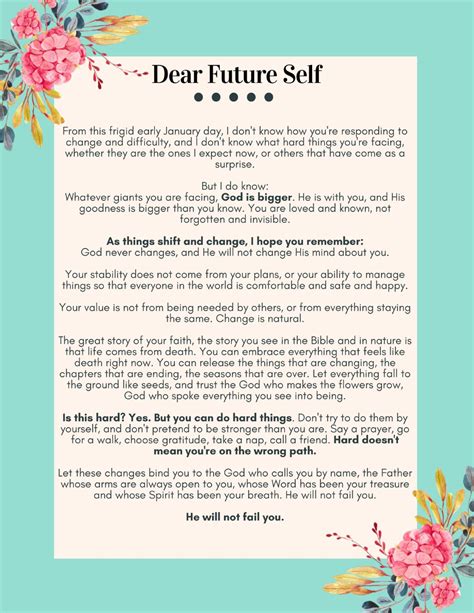 Dear Future Self
From this frigid early January day, I don't know how you're responding to
change and difficulty, and I don't know what hard things you're facing,
whether they are the ones I expect now, or others that have come as a
surprise.
But I do know:
Whatever giants you are facing, God is bigger. He is with you, and His
goodness is bigger than you know. You are loved and known, not
forgotten and invisible.
As things shift and change, I hope you remember:
God never changes, and He will not change His mind about you.
Your stability does not come from your plans, or your ability to manage
things so that everyone in the world is comfortable and safe and happy.
Your value is not from being needed by others, or from everything staying
the same. Change is natural.
The great story of your faith, the story you see in the Bible and in nature is
that life comes from death. You can embrace everything that feels like
death right now. You can release the things that are changing, the
chapters that are ending, the seasons that are over. Let everything fall to
the ground like seeds, and trust the God who makes the flowers grow,
God who spoke everything you see into being.
Is this hard? Yes. But you can do hard things. Don't try to do them by
yourself, and don't pretend to be stronger than you are. Say a prayer, go
for a walk, choose gratitude, take a nap, call a friend. Hard doesn't
mean you're on the wrong path.
Let these changes bind you to the God who calls you by name, the Father
whose arms are always open to you, whose Word has been your treasure
and whose Spirit has been your breath. He will not fail you.
He will not fail you.